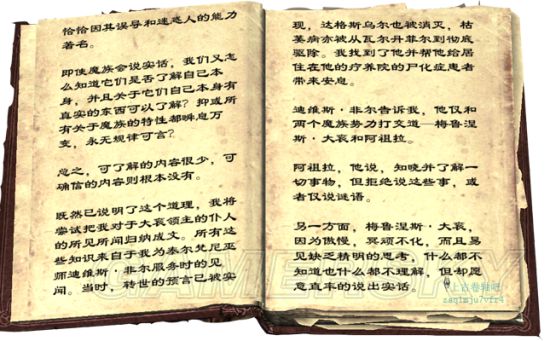 恰恰因其误导和迷惑人的能力
著名。
即使魔族会说实话，我们又怎
么知道它们是否了解自己本
身，并且关于它们自己本身有
真实的东西可以了解？抑或所
有关于魔族的特性都瞬息万
变，永无规律可言？
总之，可了解的内容很少，可
确信的内容则根本没有。
既然已说明了这个道理，我将
尝试把我对于大衮领主的仆人
的所见所闻归纳成文。所有这
些知识来自于我为泰尔梵尼巫
师迪维斯·非尔服务时的见
闻。当时，转世的预言已被实
现，达格斯乌尔也被消灭，枯
萎病亦被从瓦尔丹菲尔到彻底
驱除。我找到了他并帮他给居
住在他的疗养院的尸化症患者
带来安息。
迪维斯·非尔告诉我，他仅和
两个魔族势力打交道—梅鲁涅
斯·大衮和阿祖拉。
阿祖拉，他说，知晓并了解一
切事物，但拒绝说这些事，或
者仅说谜语。
另一方面，梅鲁涅斯·大衮，
因为傲慢，冥顽不化，而且易
见缺乏精明的思考，什么都不
知道也什么都不理解，但却愿
意直率的说出实话。
上古卷轴吧
zaq1mju7vfr4